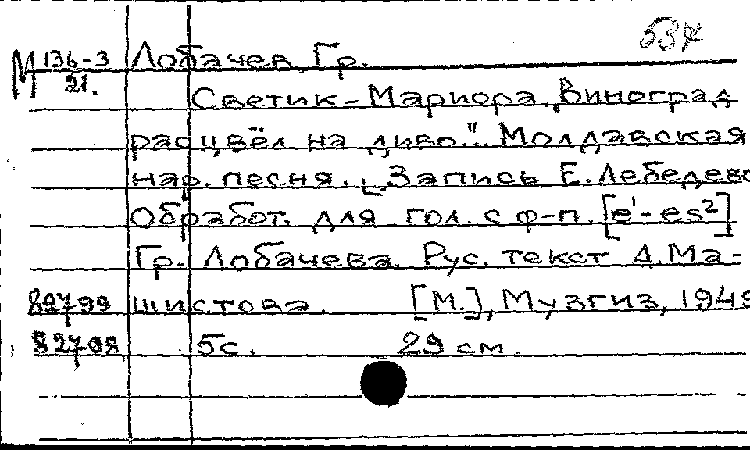 537
М 136-3 Лобачев, Гр.
21.
Светик-Мариора. „Виноград
расцвёл на диво." Молдавская
нар. песня. Запись Е. Лебедево
Обработ. для гол. с ф-п. [e¹-es²]
Гр. Лобачева. Рус. текст Д. Ма-
82799 шистова. [М.], Музгиз, 1949
82798 5с. 29 см.